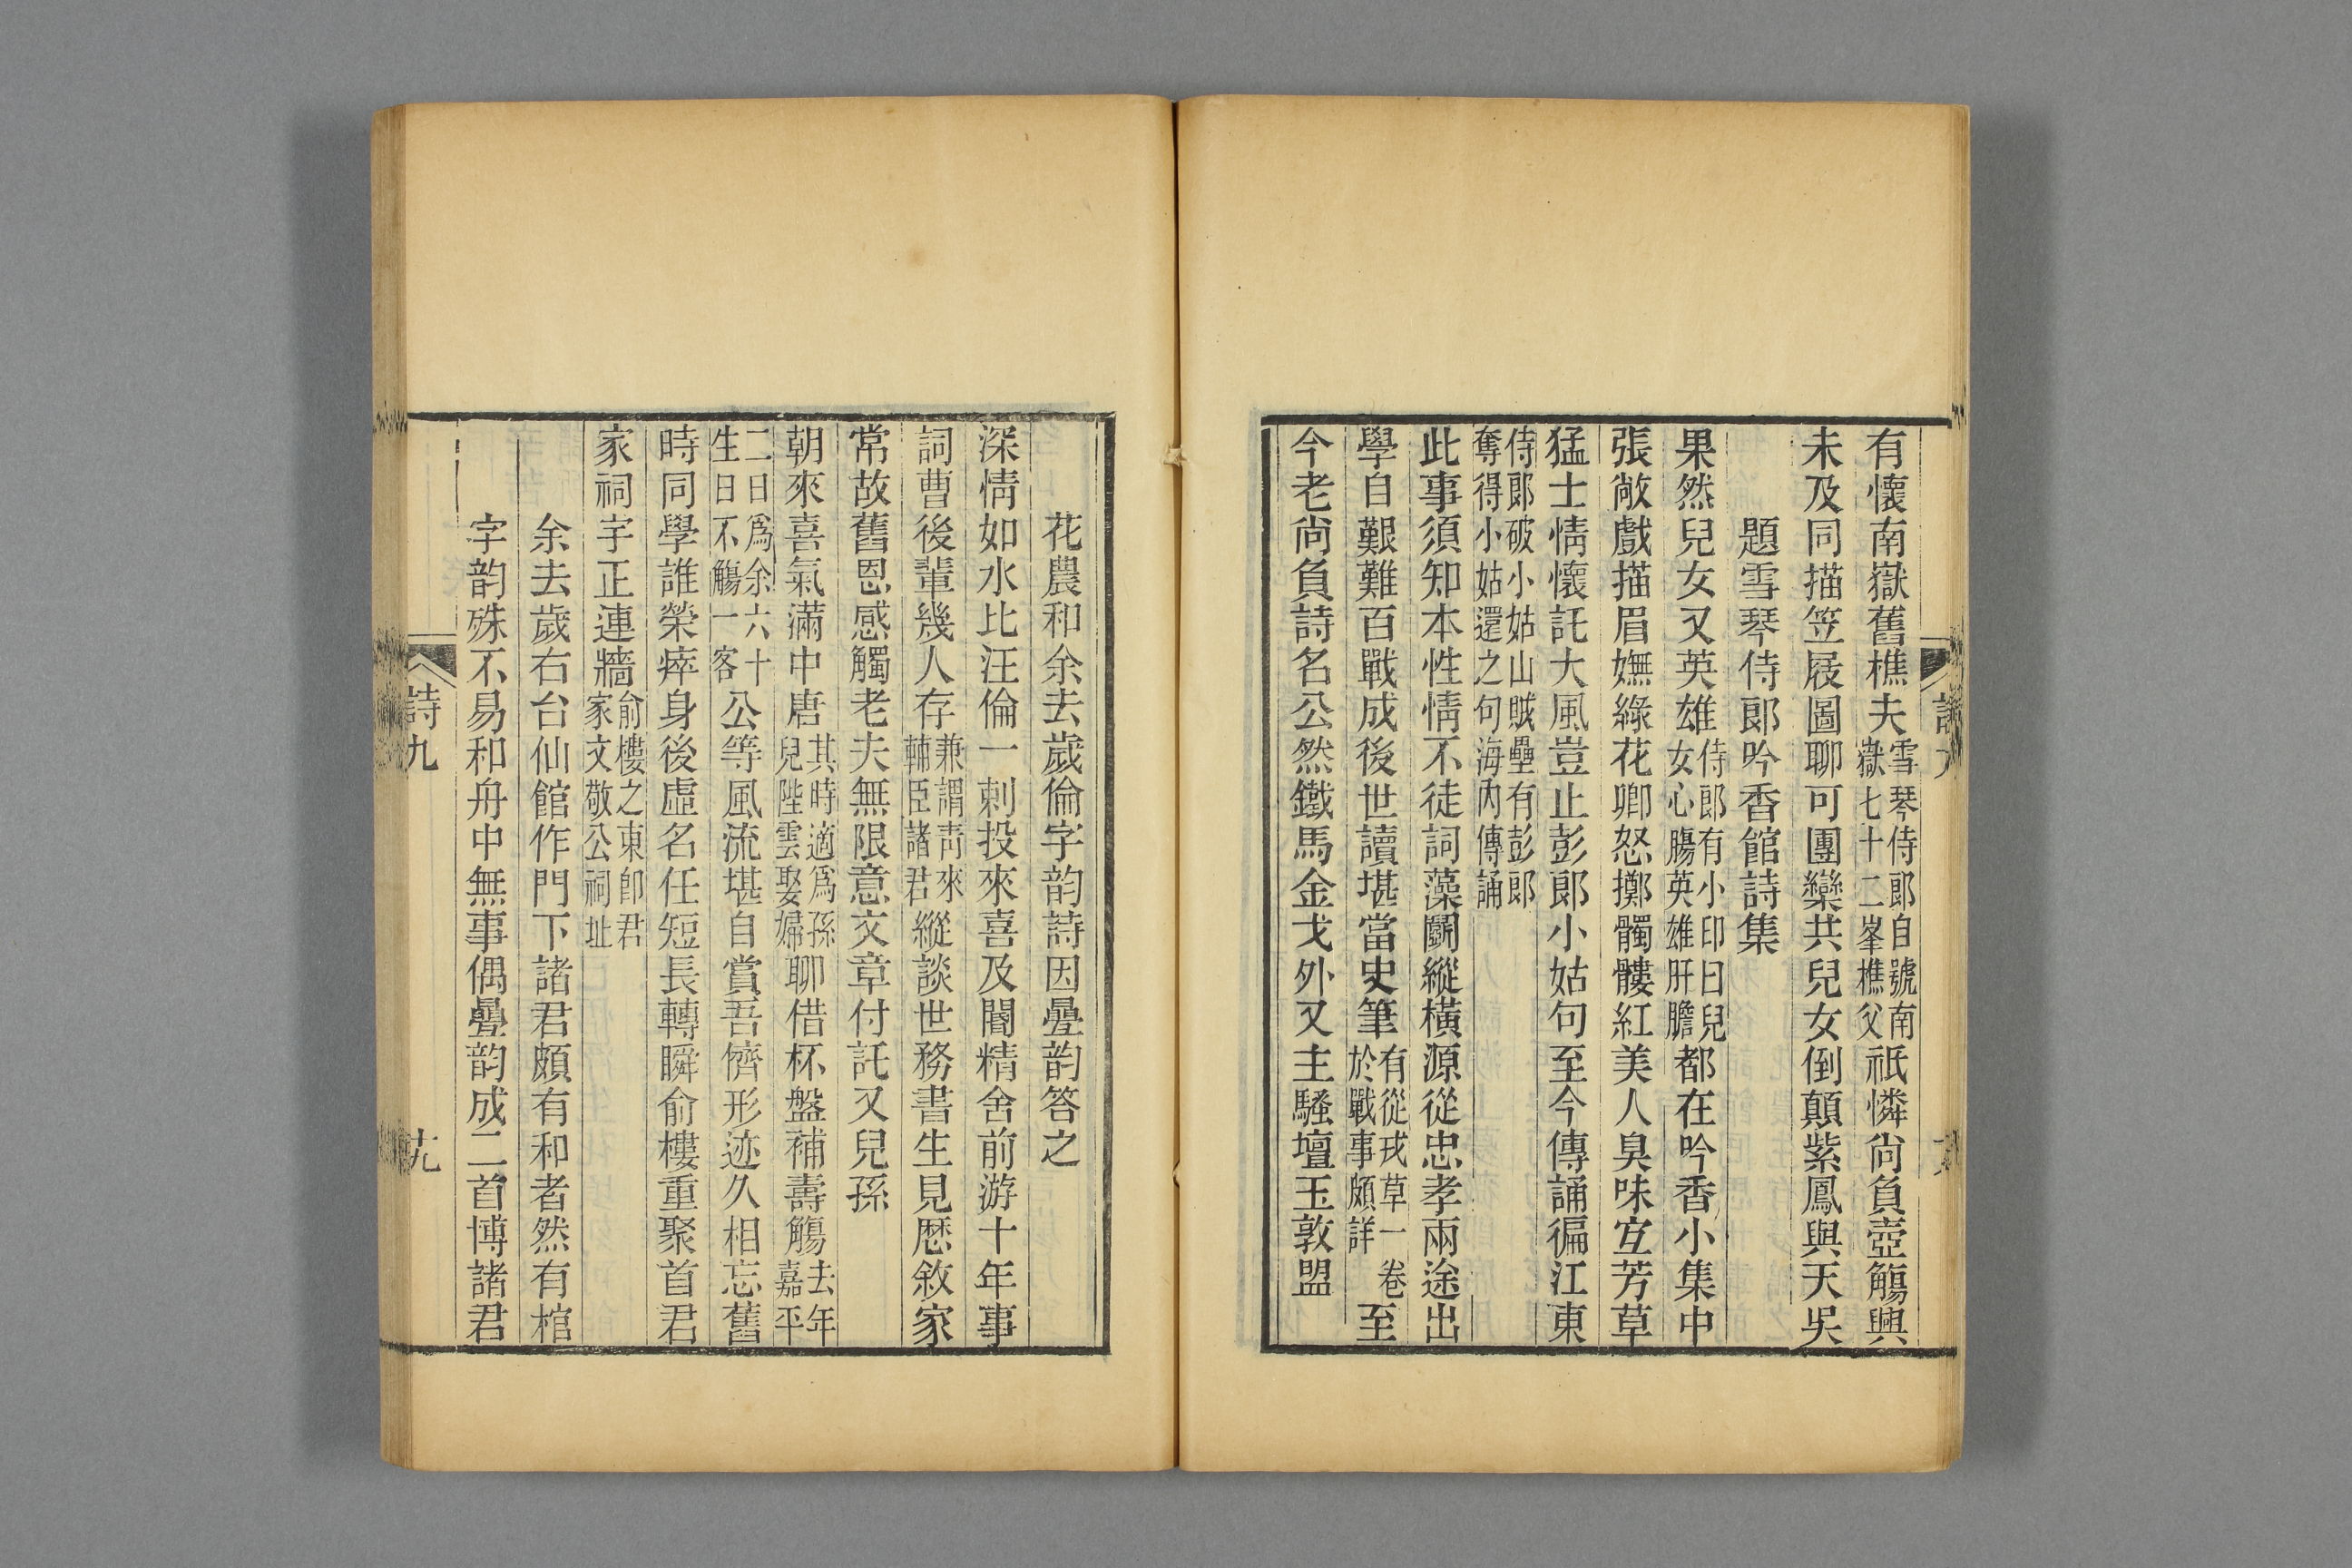 有懷南嶽舊樵夫雪琴侍郎自號南嶽七十二峯樵父祇憐尙負壺觴興
未及同描笠屐圖聊可團欒共兒女倒顛紫鳳與天吳
題雪琴侍郎吟香館詩集
果然兒女又英雄侍郎有小印曰兒女心腸英雄肝膽都在吟香小集中
張敞戲描眉嫵綠花卿怒擲髑髏紅美人臭味宐芳草
猛士情懷託大風豈止彭郎小姑句至今傳誦徧江東
侍郎破小姑山賊壘有彭郎奪得小姑還之句海內傳誦
此事須知本性情不徒詞藻鬭縱橫源從忠孝兩途出
學自艱難百戰成後世讀堪當史筆有從戎草一卷於戰事頗詳至
今老尙負詩名公然鐵馬金戈外又主騷壇玉敦盟
花農和余去歲倫字韵詩因疊韵答之
深情如水比汪倫一刺投來喜及闇精舍前游十年事
詞曹後輩幾人存兼謂靑來輔臣諸君縱談世務書生見歷敘家
常故舊恩感觸老夫無限意文章付託又兒孫
朝來喜氣滿中唐其時適爲孫兒陛雲娶婦聊借杯盤補壽觴去年嘉平
二日爲余六十生日不觴一客公等風流堪自賞吾儕形迹久相忘舊
時同學誰榮瘁身後虛名任短長轉瞬俞樓重聚首君
家祠宇正連牆俞樓之東卽君家文敬公祠址
余去歲右台仙館作門下諸君頗有和者然有棺
字韵殊不易和舟中無事偶疊韵成二首博諸君
詩九